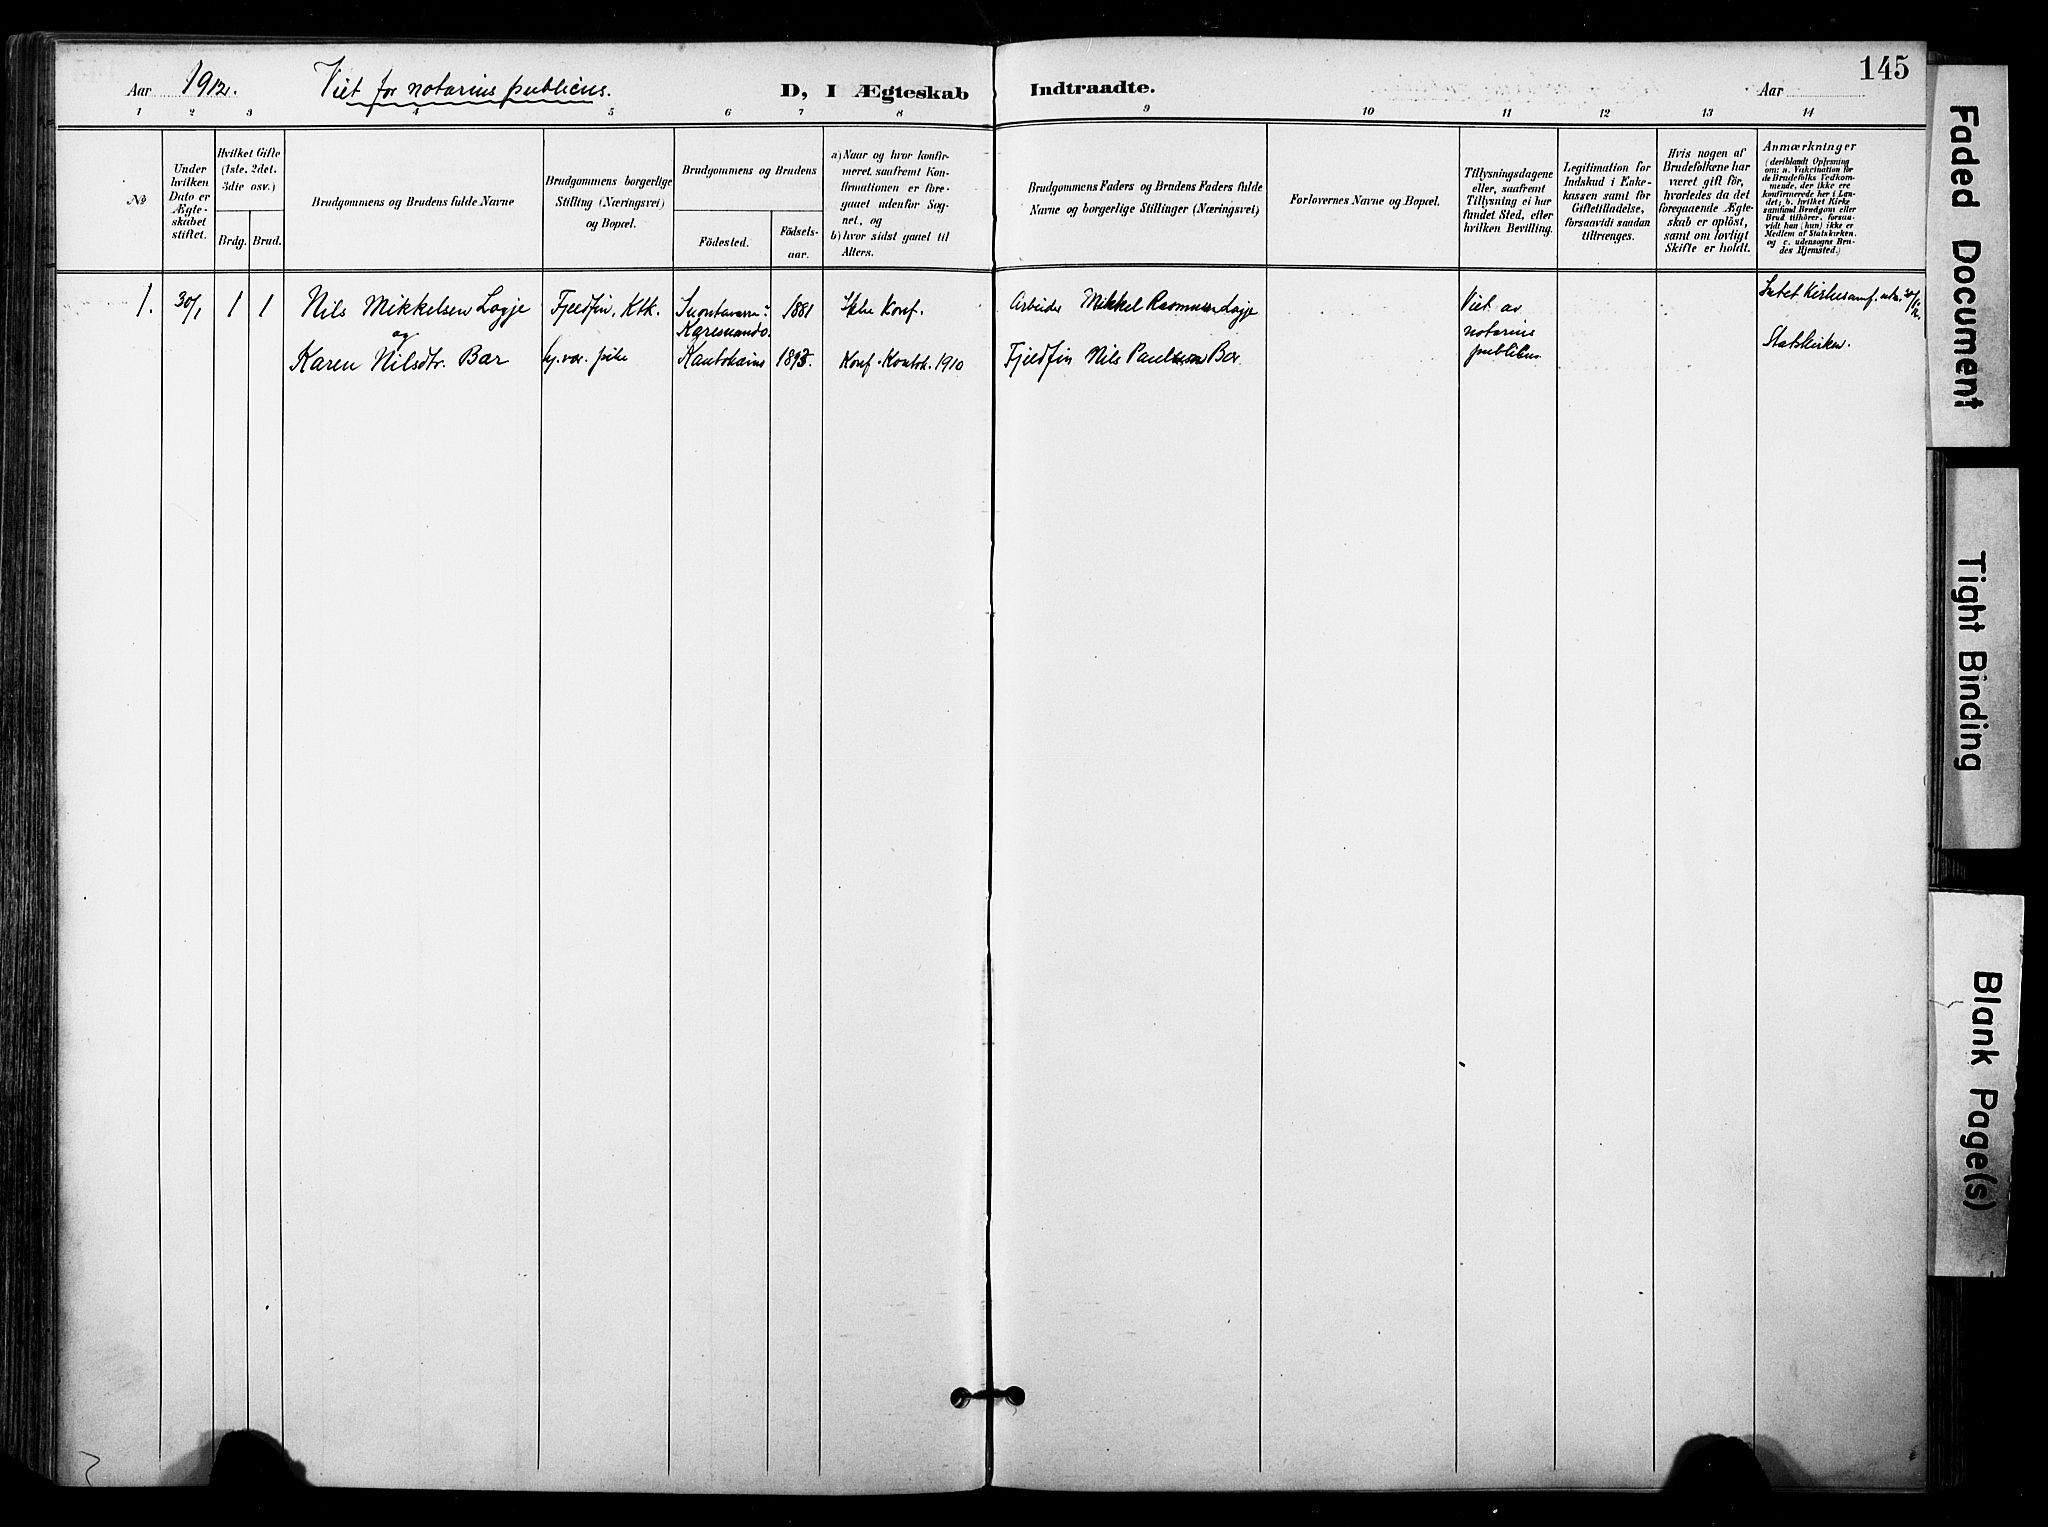 145
Aar 1912. Viet for notarius publicus. D, I Ægteskab Indtraadte. Aar
1 2 3 4 5 6 7 8 9 10 11 12 13 14
No
Under hvilken Dato er Ægteskabet stiftet.
Hvilket Gifte (1ste, 2det, 3die osv.)
Brdg. Brud.
Brudgommens og Brudens fulde Navne
Brudgommens borgerlige Stilling (Næringsvei) og Bopæl.
Brudgommens og Brudens
Födested.
Födsels-aar.
a) Naar og hvor konfirmeret, saafremt Konfirmationen er foregaaet udenfor Sognet, og
b) hvor sidst gaaet til Alters.
Brudgommens Faders og Brudens Faders fulde Navne og borgerlige Stillinger (Næringsvei)
Forlovernes Navne og Bopæl.
Tillysningsdagene eller, saafremt Tillysning ei har fundet Sted, efter hvilken Bevilling.
Legitimation for Indskud i Enkekassen samt for Giftetilladelse, forsaavidt saadan tiltrænges.
Hvis nogen af Brudefolkene har været gift för, hvorledes da det foregaaende Ægteskab er oplöst, samt om lovligt Skifte er holdt.
Anmærkninger
(deriblandt Oplysning om: a. Vakcination for de Brudefolks Vedkommende, der ikke ere konfirmerede her i Landet; b. hvilket Kirkesamfund Brudgom eller Brud tilhörer, forsaavidt han (hun) ikke er Medlem af Statskirken, og c. udensogns Brudes Hjemsted.)
1. 30/1 1 1 Nils Mikkelsen Logje Fjeldfin, Ktk. Suontavaara i Karesuando 1881 Ikke Konf. Arbeider Mikkel Rasmussen Logje Viet av notarius publicus Intet Kirkesamf.
og
Karen Nilsdtr. Bær pike Kautokeino 1893. Konf. Kautok. 1910 Fjeldfin Nils Paulsen Bær Statskirken.
Faded Document
Tight Binding
Blank Page(s)